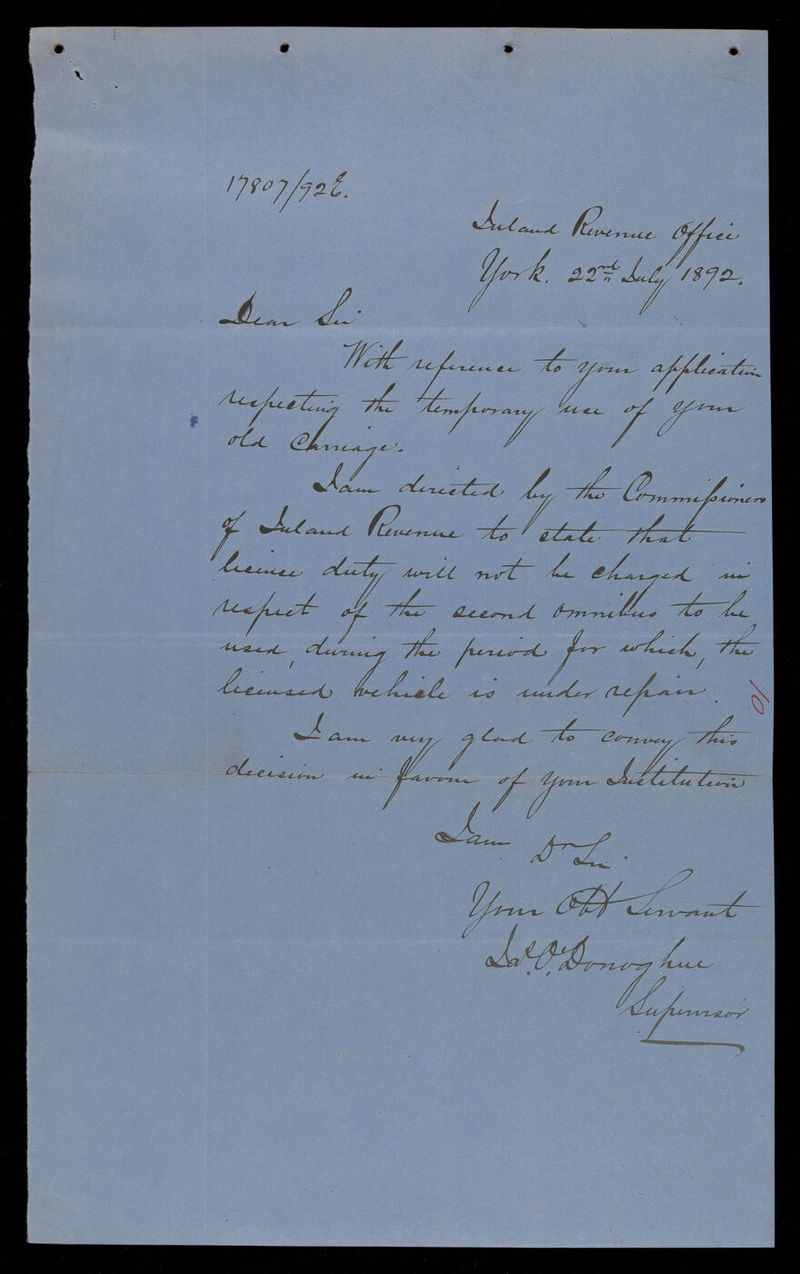 17807/92 E.
Inland Revenue Office
York. 22nd July 1892.
Dear Sir
With reference to your application
respecting the temporary use of your
old Carriage.
I am directed by the Commissioners
of Inland Revenue to state that
license duty will not be charged in
respect of the second omnibus to be
used, during the period for which, the
licensed vehicle is under repair.
10
I am very glad to convey this
decision in favour of your Institution
I am
Dr Sir
Your Obt Servant
Jas. O'Donoghue
Supervisor